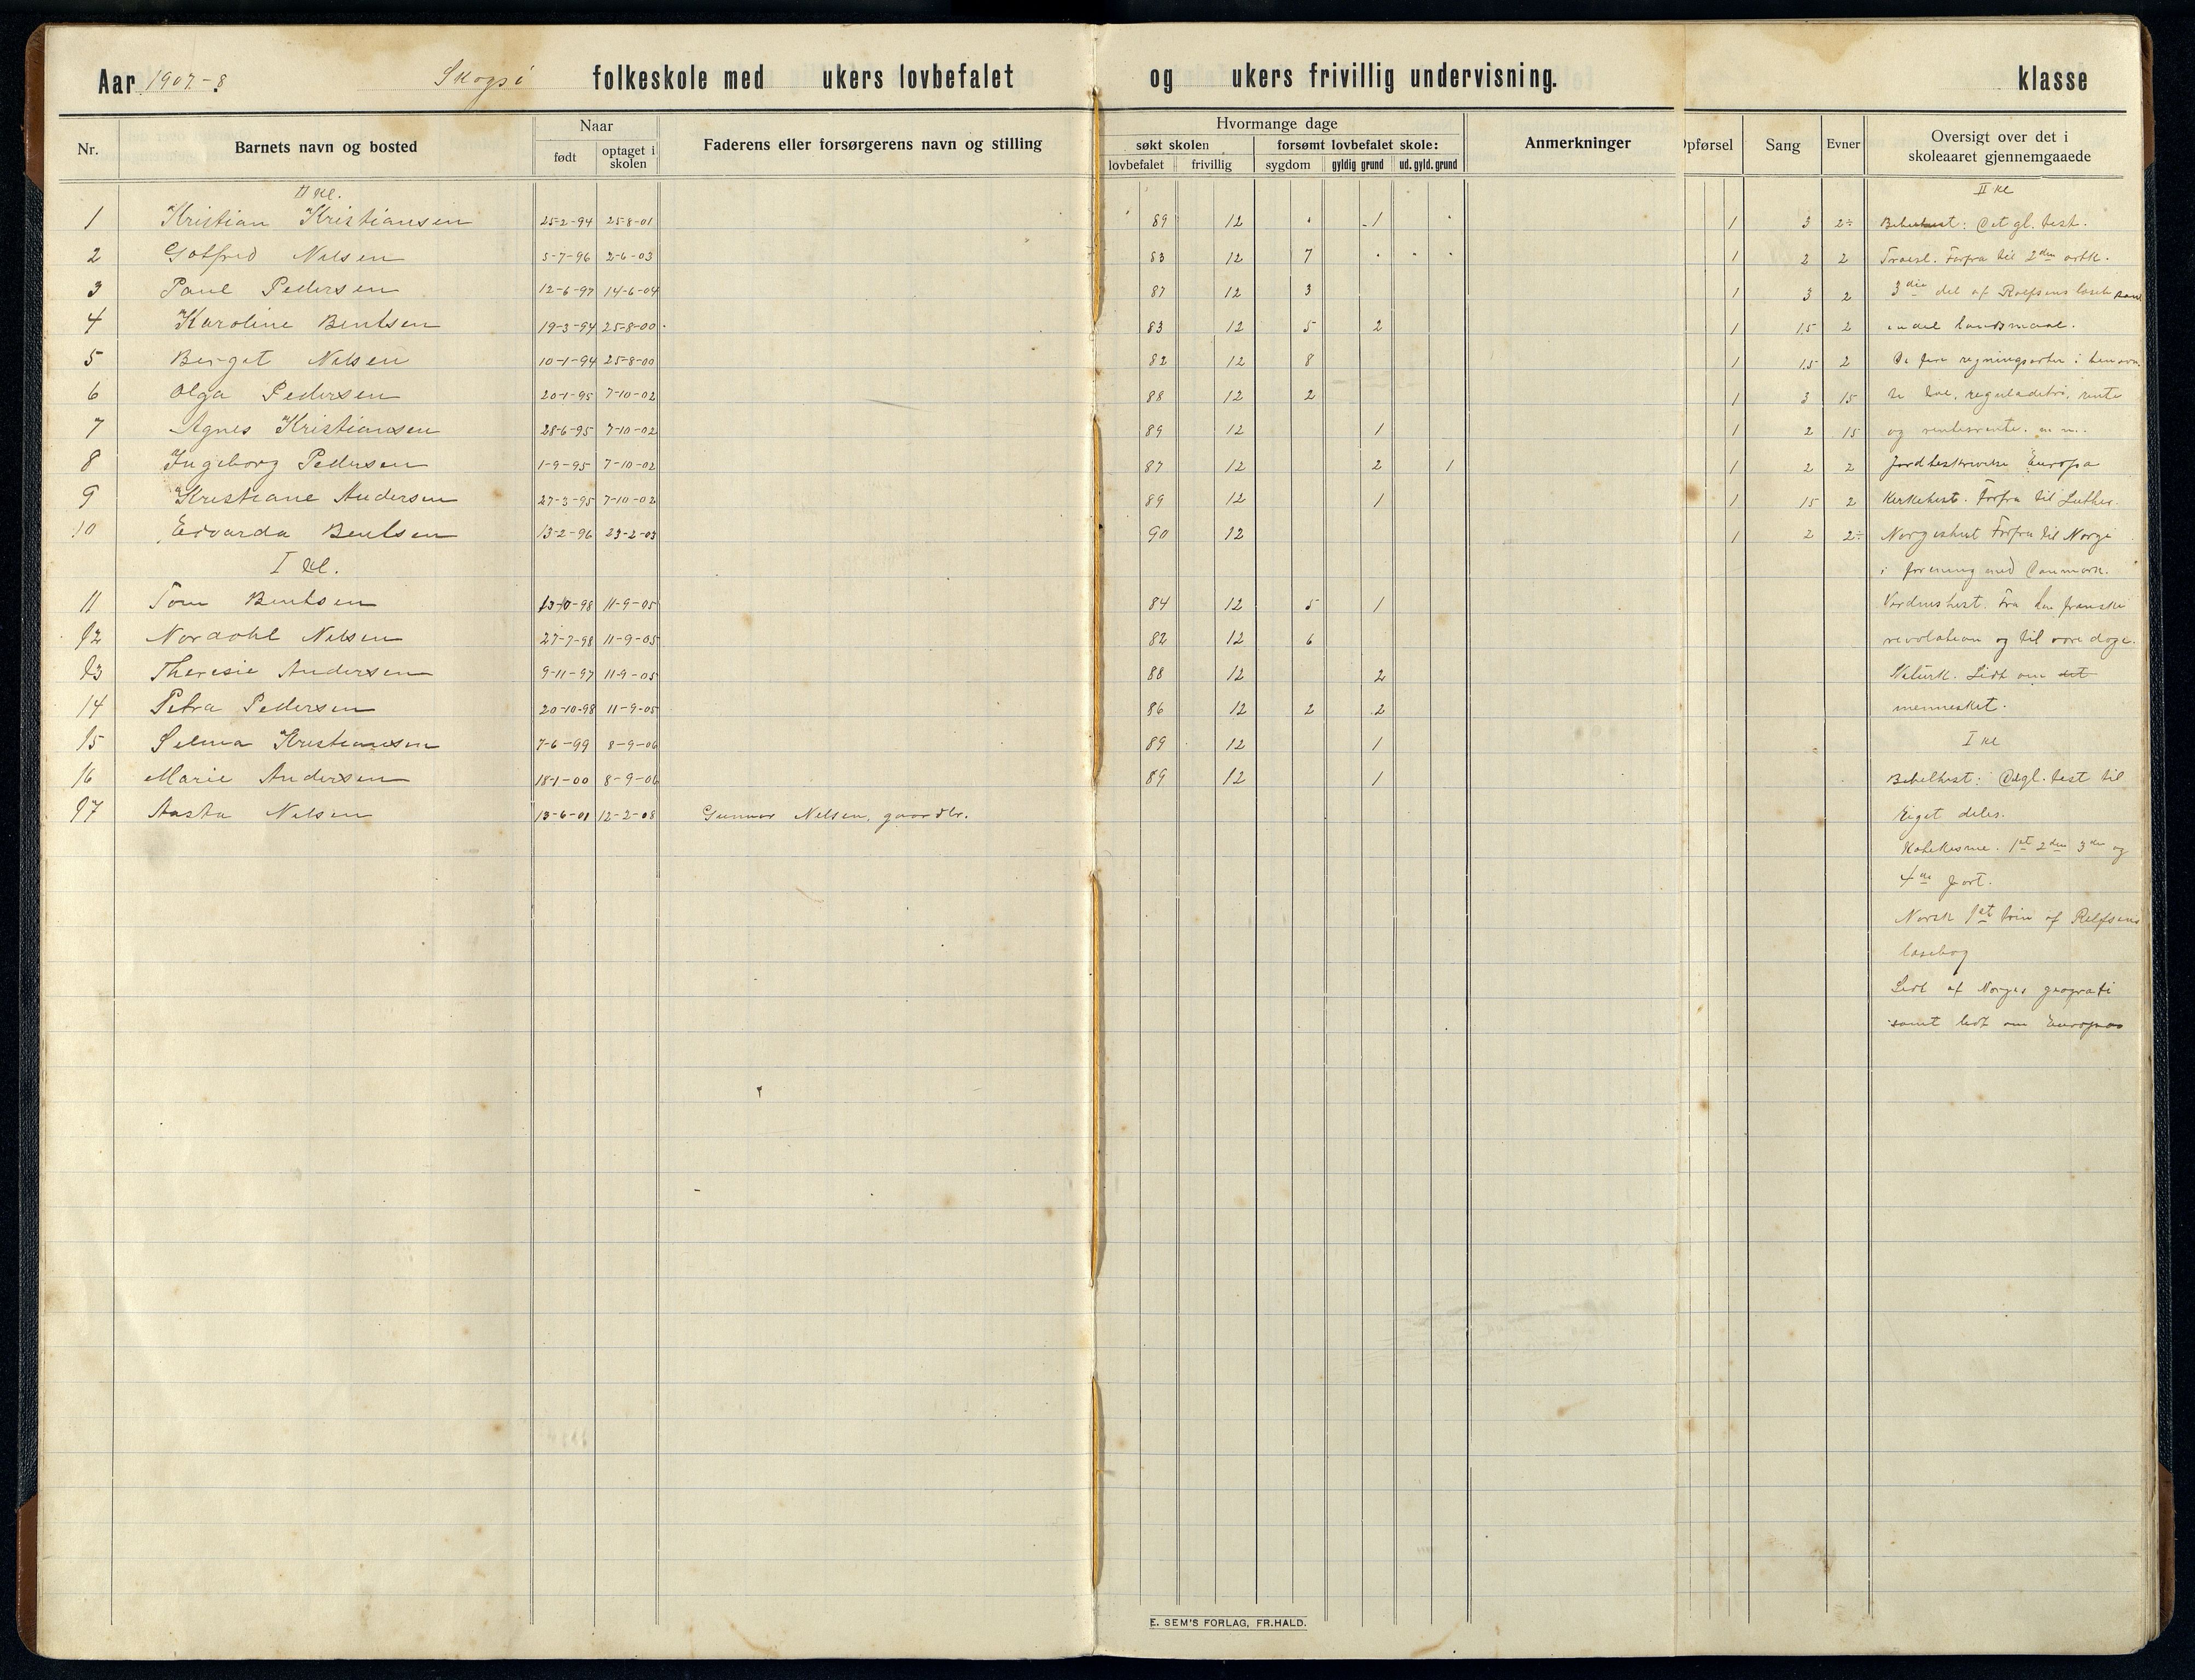 Aar 1907-8 Skogsö folkeskole med ukers lovbefalet og ukers frivillig undervisning. klasse
Nr. Barnets navn og bosted Naar født optaget i skolen Faderens eller forsørgerens navn og stilling Hvormange dage søkt skolen lovbefalet frivillig forsømt lovbefalet skole: sygdom gyldig grund ud. gyld. grund Anmerkninger Opførsel Sang Evner Oversigt over det i skoleaaret gjennemgaaede
II kl. II kl
1 Kristian Kristiansen 25-2-94 25-8-01 89 12 1 1 3 2÷ : Det gl. test.
2 Gotfred Nilsen 5-7-96 2-6-03 83 12 7 1 2 2 Troesl. Forfra til 2den artk.
3 Paul Pedersen 12-6-97 14-6-04 87 12 3 1 3 2 3die del af Rolfsens læseb samt
4 Karoline Bentsen 19-3-94 25-8-00 83 12 5 2 1 1.5 2 endel landsmaal.
5 Berget Nilsen 10-1-94 25-8-00 82 12 8 1 1.5 2 De fire regningsarter i
6 Olga Pedersen 20-1-95 7-10-02 88 12 2 1 3 15 reguladetri, rente
7 Agnes Kristiansen 28-6-95 7-10-02 89 12 1 1 2 15 og rentesrente. m. m.
8 Ingeborg Pedersen 1-9-95 7-10-02 87 12 2 1 1 2 2 Jordbeskrivelse Europa
9 Kristiane Andersen 27-3-95 7-10-02 89 12 1 1 15 2 Kirkehist. Forfra til Luther.
10 Edvarda Bentsen 13-2-96 23-2-03 90 12 1 2 2÷ Norgeshist Forfra til Norge
I kl. i forening med Danmark.
11 Tom Bentsen 13-10-98 11-9-05 84 12 5 1 Verdenshist. Fra den franske
12 Nordahl Nilsen 27-7-98 11-9-05 82 12 6 revolution og til vore dage.
13 Theresie Andersen 9-11-97 11-9-05 88 12 2 Naturk. Lidt om det
14 Petra Pedersen 20-10-98 11-9-05 86 12 2 2 mennesket.
15 Selma Kristiansen 7-6-99 8-9-06 89 12 1 I kl
16 Marie Andersen 18-1-00 8-9-06 89 12 1 Bibelhist: Detgl. test til
17 Aasta Nilsen 13-6-01 12-2-08 Gunnar Nilsen, gaardbr. Riget deles.
Katekisme. 1st 2den 3die og
4de part.
Norsk 1st trin af Rolfsens
læsebog
Lidt af Norges geografi
samt lidt om Europas
E. SEM'S FORLAG, FR.HALD.